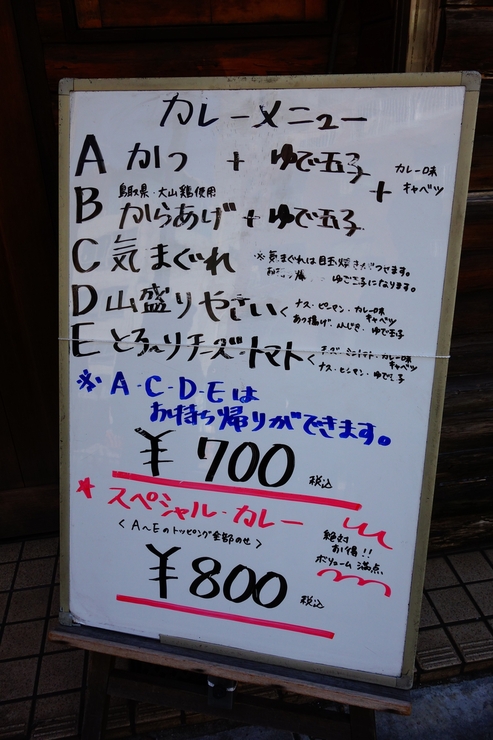 カレーメニュー
A かつ + ゆで玉子 + カレー味 キャベツ
B 鳥取県・大山鶏使用
からあげ + ゆで玉子
C 気まぐれ ※気まぐれは目玉焼きがつきます。
ゆで玉子になります。
D 山盛りやさい< ナス・ピーマン・カレー味キャベツ
あつ揚げ・にんじん・ゆで玉子
E とろ〜りチーズ・トマト< チーズ・ミニトマト・カレー味キャベツ
ナス・ピーマン・ゆで玉子
※A・C・D・Eは
お持ち帰りができます。
¥700 税込
★スペシャル・カレー
<A〜Eのトッピング全部のせ>
絶対
お得!!
ボリューム満点
¥800 税込